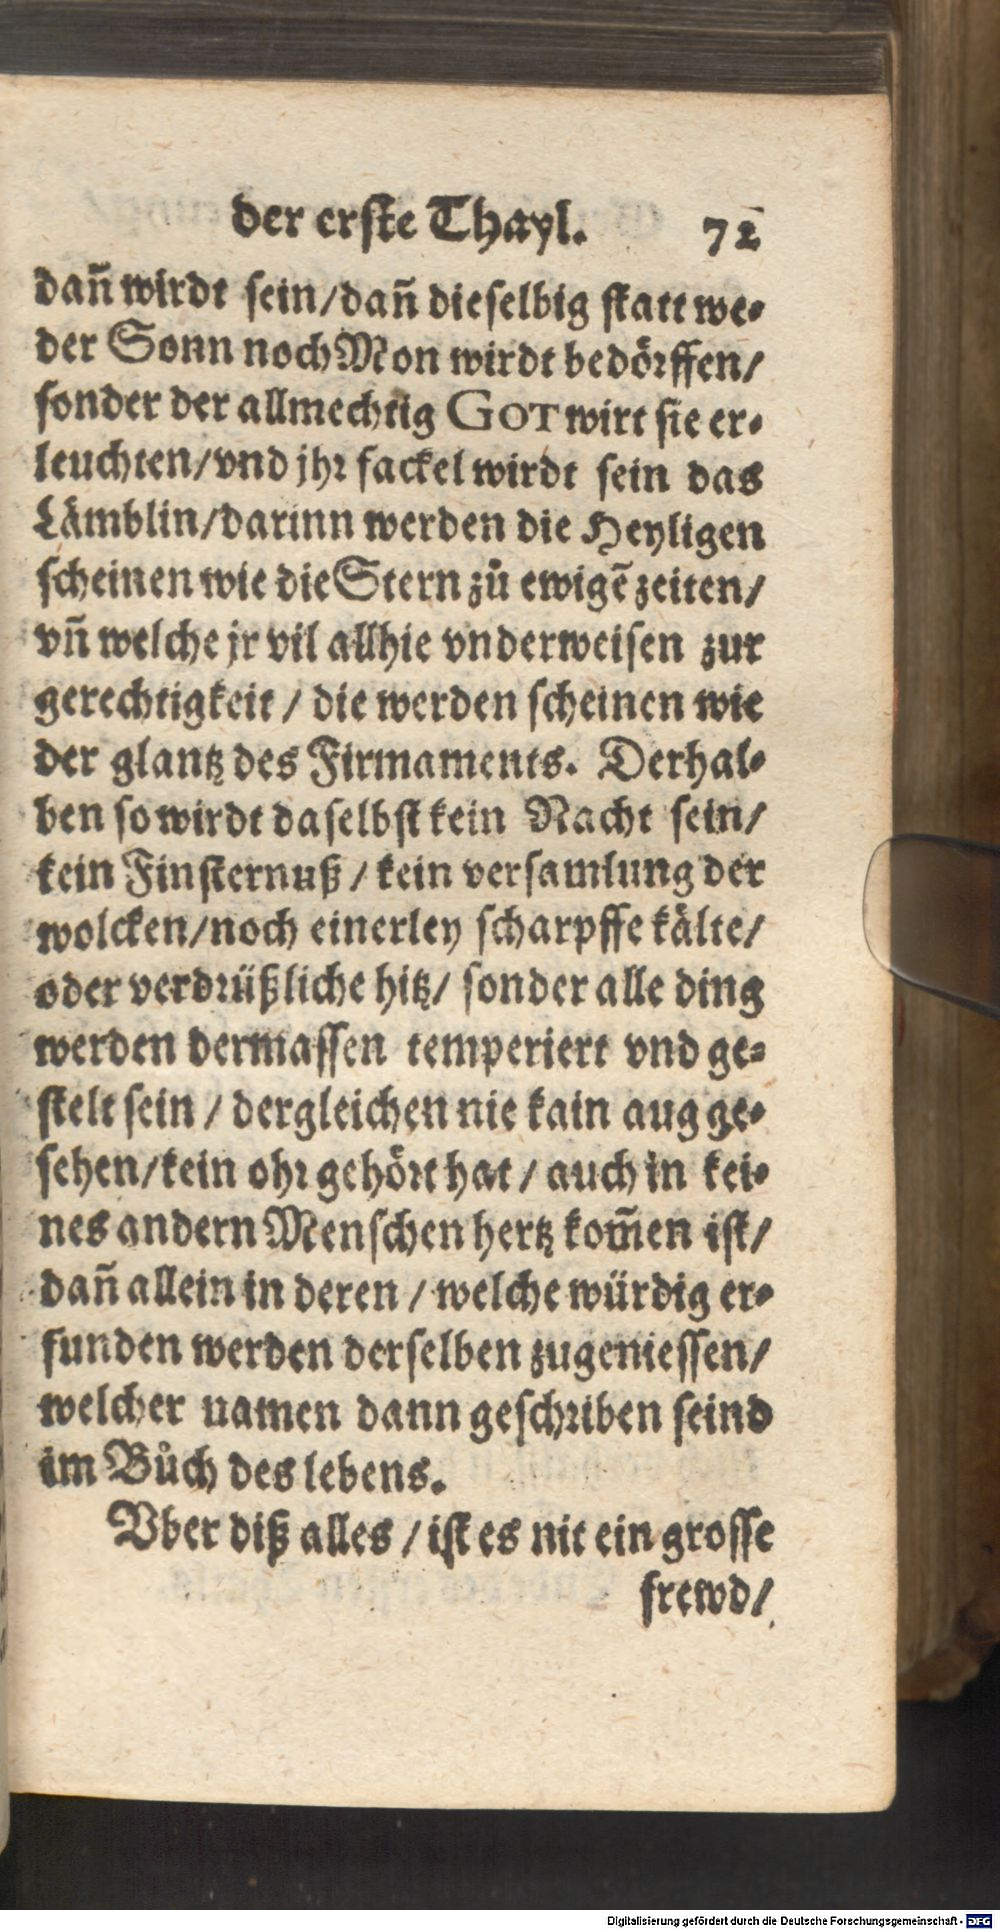 der erste Thayl. 72
dañ wirdt sein/dañ dieselbig statt we-
der Sonn noch Mon wirdt bedörffen/
sonder der allmechtig GOT wirt sie er-
leuchten/vnd jhr fackel wirdt sein das
Lämblin/darinn werden die Heyligen
scheinen wie die Stern zů ewigē zeiten/
vñ welche jr vil allhie vnderweisen zur
gerechtigkeit / die werden scheinen wie
der glantz des Firmaments. Derhal-
ben so wirdt daselbst kein Nacht sein/
kein Finsternuß / kein versamlung der
wolcken/noch einerley scharpffe kälte/
oder verdrüßliche hitz/ sonder alle ding
werden dermassen temperiert vnd ge-
stelt sein / dergleichen nie kain aug ge-
sehen/kein ohr gehört hat / auch in kei-
nes andern Menschen hertz kom̃en ist/
dañ allein in deren / welche würdig er-
funden werden derselben zugeniessen/
welcher namen dann geschriben seind
im Bůch des lebens.
Vber diß alles / ist es nit ein grosse
frewd/
Digitalisierung gefördert durch die Deutsche Forschungsgemeinschaft - DFG